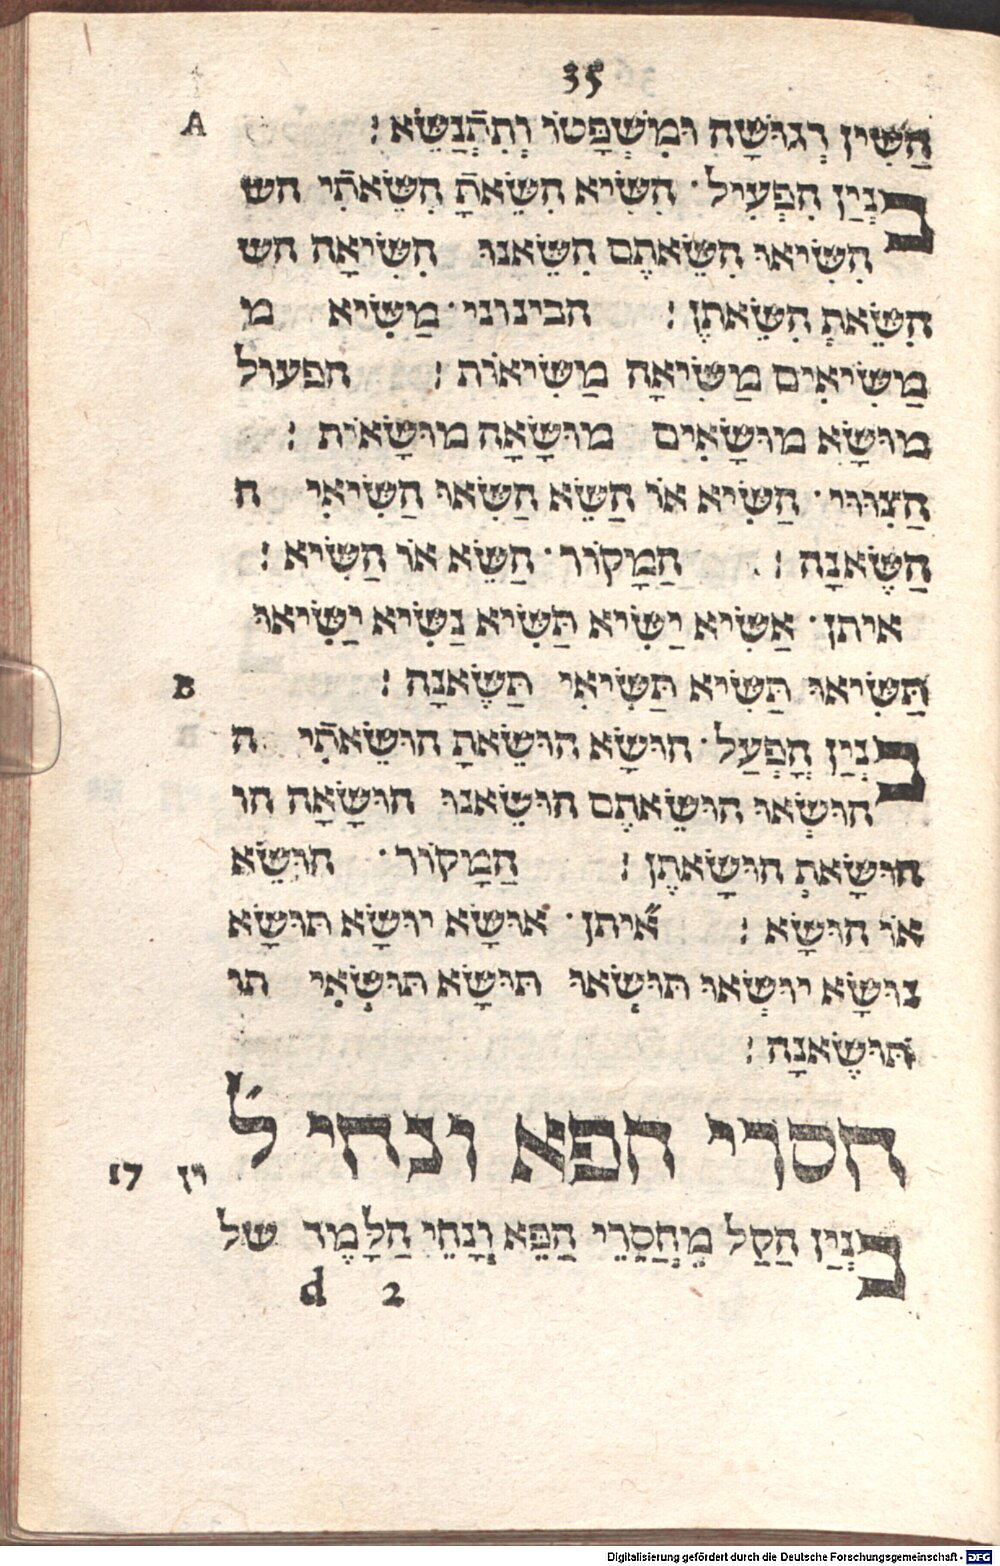 35
A הַשִּׁין דְּגוּשָׁה וּמִשְׁפָּטוֹ וְתִתְנַשֵּׂא׃
בִּנְיַן הִפְעִיל · הִשִּׂיא הִשֵּׂאתָ הִשֵּׂאתִי הש
הִשִּׂיאוּ הִשֵּׂאתֶם הִשֵּׂאנוּ הִשִּׂיאָה הש
הִשֵּׂאתְ הִשֵּׂאתֶן׃ הבינוני · מַשִּׂיא מ
מַשִּׂיאִים מַשִּׂיאָה מַשִּׂיאוֹת׃ הפעול
מוּשָּׂא מוּשָּׂאִים מוּשָּׂאָה מוּשָּׂאוֹת׃
הַצִּוּוּי · הַשִּׂיא אוֹ הַשֵּׂא הַשִּׂיאוּ הַשִּׂיאִי ה
הַשֶּׂאנָה׃ הַמָקוֹר · הַשֵּׂא אוֹ הַשִּׂיא׃
איתן · אַשִּׂיא יַשִּׂיא תַּשִּׂיא נַשִּׂיא יַשִּׂיאוּ
B תַּשִּׂיאוּ תַּשִּׂיא תַּשִּׂיאִי תַּשֶּׂאנָה׃
בִּנְיַן הָפְעַל · הוּשָּׂא הוּשֵּׂאתָ הוּשֵּׂאתִי ה
הוּשְּׂאוּ הוּשֵּׂאתֶם הוּשֵּׂאנוּ הוּשָּׂאָה הו
הוּשָּׂאתְ הוּשָּׂאתֶן׃ הַמָקוֹר · הוּשֵּׂא
אוֹ הוּשָּׂא׃ אי״תן · אוּשָּׂא יוּשָּׂא תּוּשָּׂא
נוּשָּׂא יוּשְּׂאוּ תּוּשְּׂאוּ תּוּשָּׂא תּוּשְּׂאִי תו
תּוּשֶּׂאנָה׃
חסרי הפא ונחי ל״
17 יז
בִּנְיַן הַקַל מֵחַסְרֵי הַפֵּא וְנָחֵי הַלָמֶד של
d 2
Digitalisierung gefördert durch die Deutsche Forschungsgemeinschaft - DFG